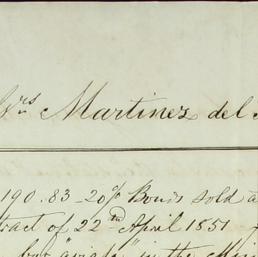 Martinez del
190.83 - 20% Bonds sold a
tract of 22nd April 1851
in the